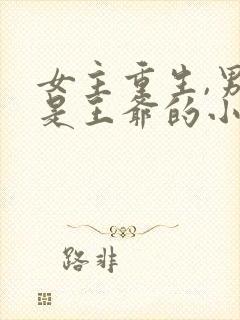 女主重生,男
是王爷的小
路非